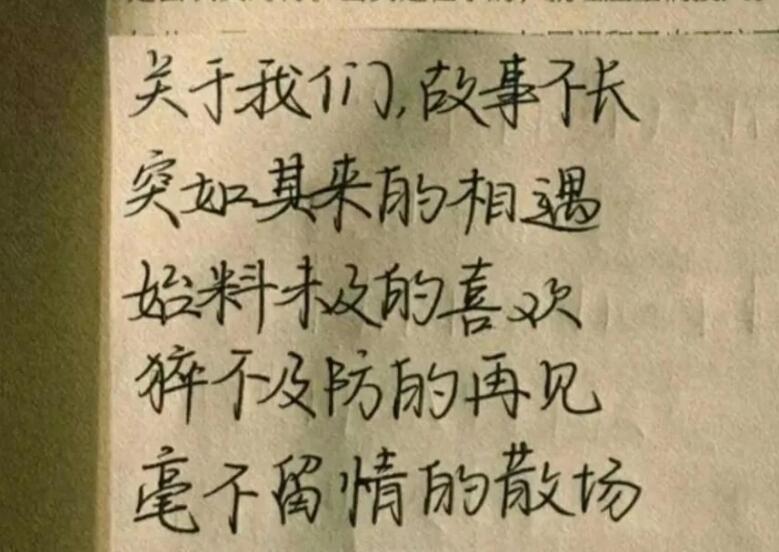 关于我们,故事不长
突如其来的相遇
始料未及的喜欢
猝不及防的再见
毫不留情的散场